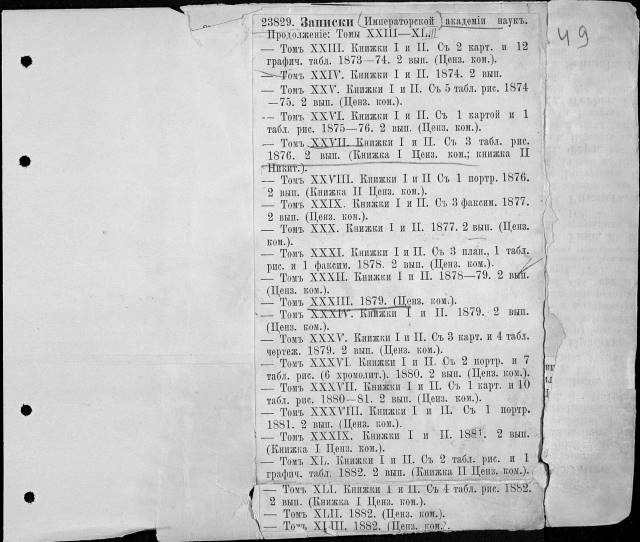 49
23829. Записки (Императорской) академіи наукъ.
Продолженіе: Томы XXIII—XLIII
— Томъ XXIII. Книжки I и II. Съ 2 карт. и 12
графич. табл. 1873—74. 2 вып. (Ценз. ком.).
— Томъ XXIV. Книжки I и II. 1874. 2 вып.
— Томъ XXV. Книжки I и II. Съ 5 табл. рис. 1874
—75. 2 вып. (Ценз. ком.).
— Томъ XXVI. Книжки I и II. Съ 1 картой и 1
табл. рис. 1875—76. 2 вып. (Ценз. ком.).
— Томъ XXVII. Книжки I и II. Съ 3 табл. рис.
1876. 2 вып. (Книжка I Ценз. ком.; книжка II
Никит.).
— Томъ XXVIII. Книжки I и II Съ 1 портр. 1876.
2 вып. (Книжка II Ценз. ком.).
— Томъ XXIX. Книжки I и II. Съ 3 факсим. 1877.
2 вып. (Ценз. ком.).
— Томъ XXX. Книжки I и II. 1877. 2 вып. (Ценз.
ком.).
— Томъ XXXI. Книжки I и II. Съ 3 план., 1 табл.
рис. и 1 факсим. 1878. 2 вып. (Ценз. ком.).
— Томъ XXXII. Книжки I и II. 1878—79. 2 вып.
(Ценз. ком.).
— Томъ XXXIII. 1879. (Ценз. ком.).
— Томъ XXXIV. Книжки I и II. 1879. 2 вып.
(Ценз. ком.).
— Томъ XXXV. Книжки I и II. Съ 3 карт. и 4 табл.
чертеж. 1879. 2 вып. (Ценз. ком.).
— Томъ XXXVI. Книжки I и II. Съ 2 портр. и 7
табл. рис. (6 хромолит.). 1880. 2 вып. (Ценз. ком.).
— Томъ XXXVII. Книжки I и II. Съ 1 карт. и 10
табл. рис. 1880—81. 2 вып. (Ценз. ком.).
— Томъ XXXVIII. Книжки I и II. Съ 1 портр.
1881. 2 вып. (Ценз. ком.).
— Томъ XXXIX. Книжки I и II. 1881. 2 вып.
(Книжка I Ценз. ком.).
— Томъ XL. Книжки I и II. Съ 2 табл. рис. и 1
графич. табл. 1882. 2 вып. (Книжка II Ценз. ком.).
— Томъ XLI. Книжки I и II. Съ 4 табл. рис. 1882.
2 вып. (Книжка I Ценз. ком.).
— Томъ XLII. 1882. (Ценз. ком.).
— Томъ XLIII. 1882. (Ценз. ком.).